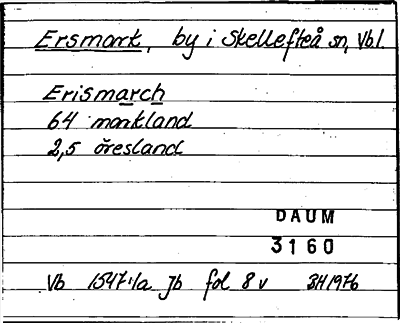 Ersmark, by i Skellefteå sn, Vb.l.
Erismarch
64 markland
2,5 öresland
DAUM
3160
Vb 1547:1a Jb fol 8 v 3H1976